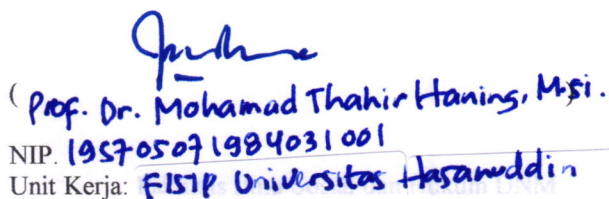 ( Prof. Dr. Mohamad Thahir Haning, M.si. )
NIP. 195705071984031001
Unit Kerja: FISIP Universitas Hasanuddin